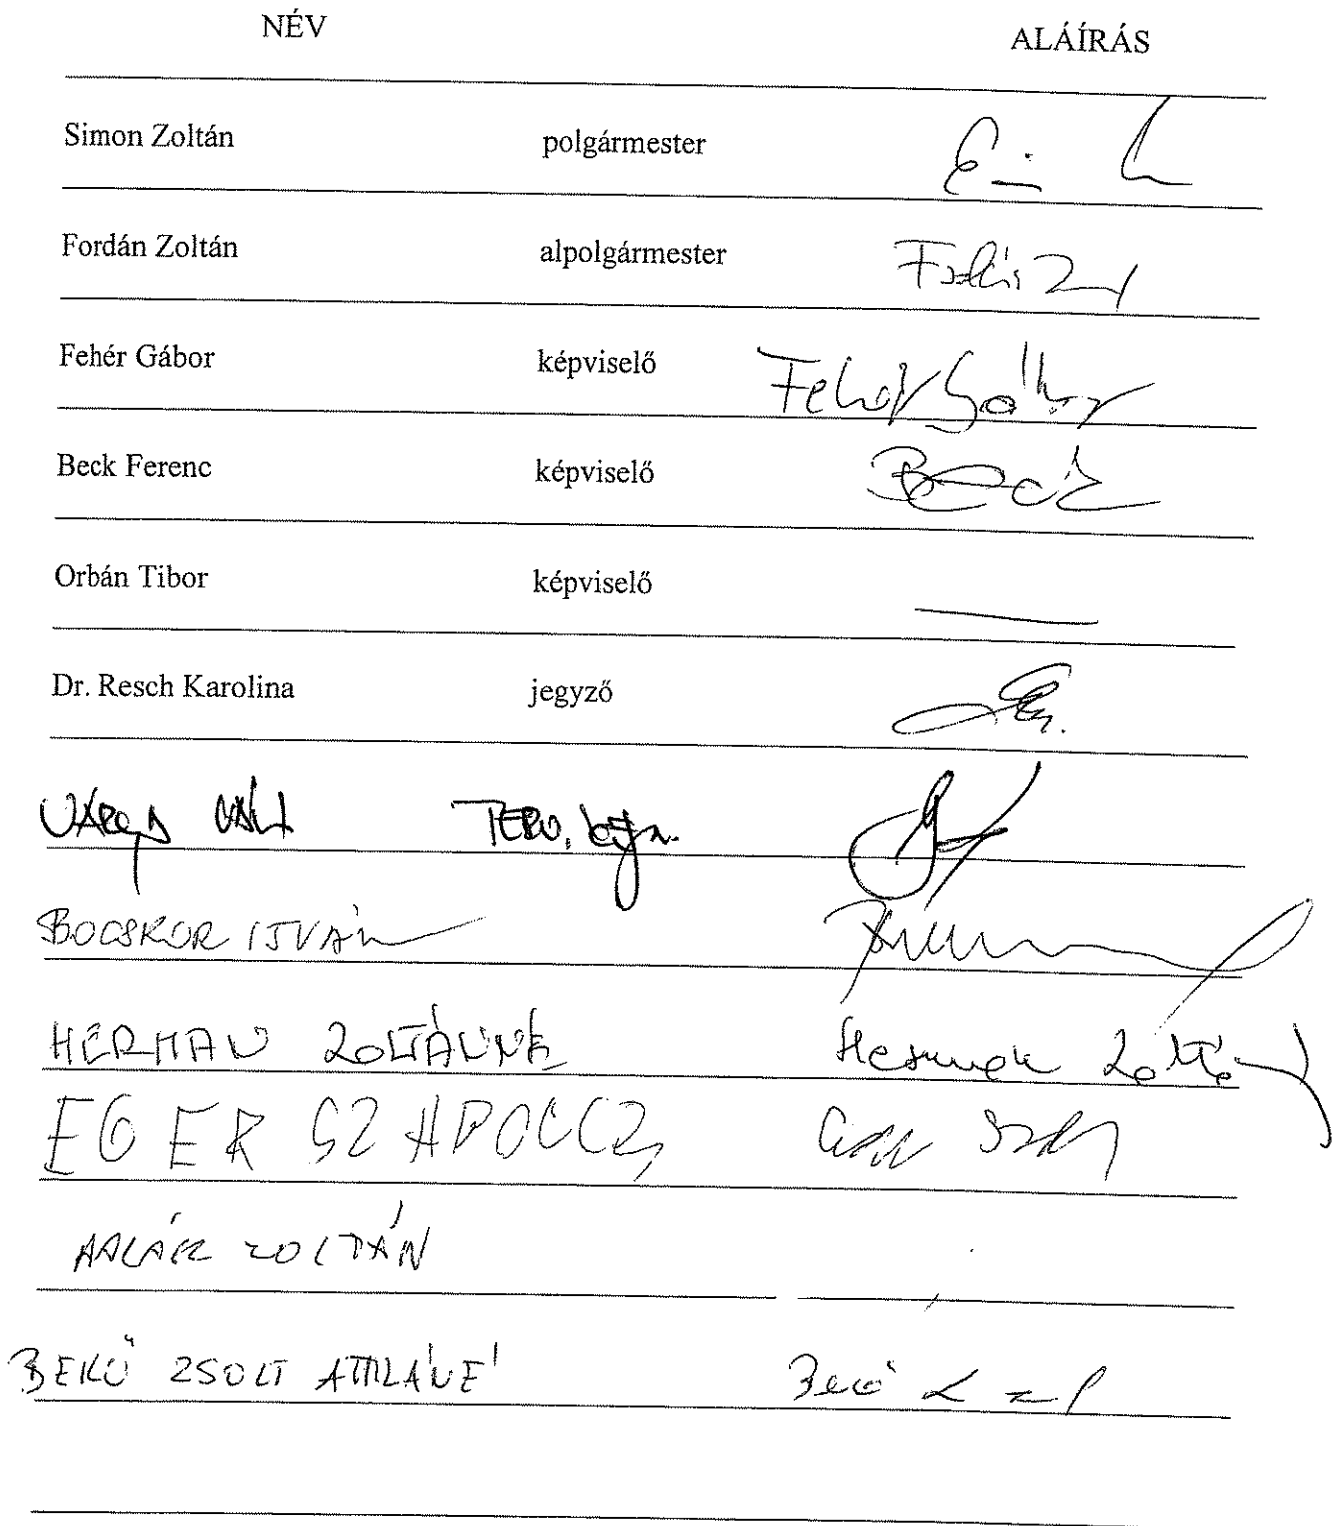 NÉV ALÁÍRÁS
Simon Zoltán polgármester
Fordán Zoltán alpolgármester
Fehér Gábor képviselő Fehér Gábor
Beck Ferenc képviselő Beck
Orbán Tibor képviselő
Dr. Resch Karolina jegyző
VARGA
BOCSKOR ISTVÁN
HERMAN ZOLTÁNNÉ Herman Zoltánné
EGER SZABOLCS
ZOLTÁN
BEKŐ ZSOLT ATTILÁNÉ Bekő